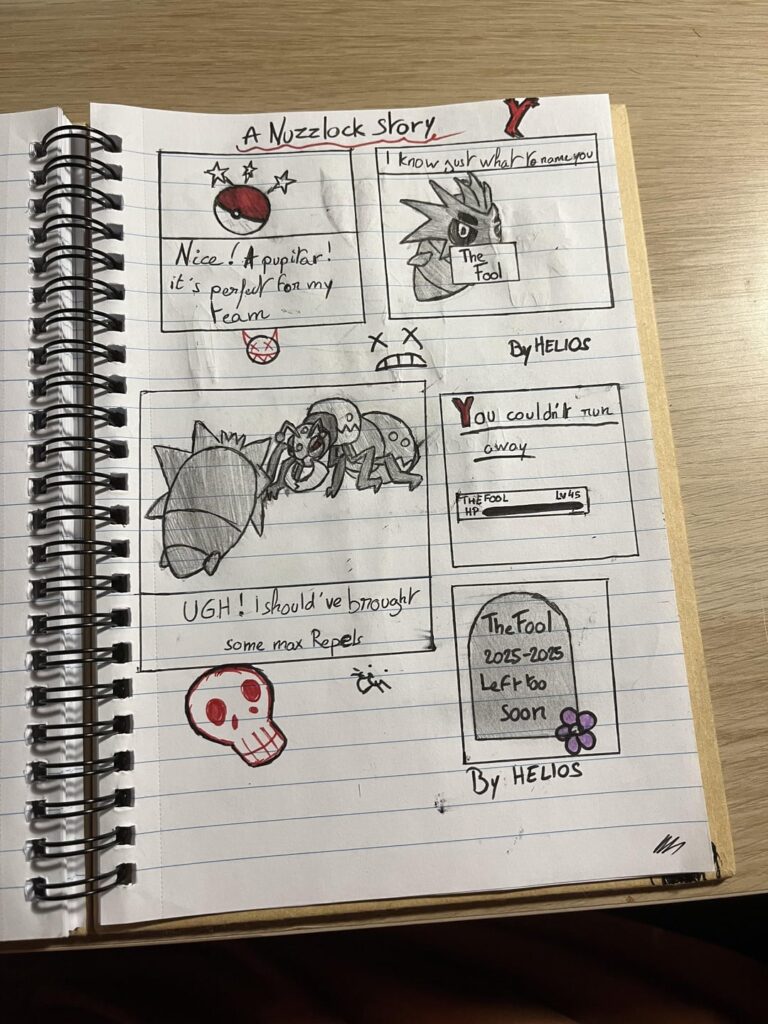 A Nuzzlock story
Y
Nice! A pupitar!
it's perfect for my
team
I know just what to name you
The
Fool
By HELIOS
UGH! I should've brought
some max Repels
You couldn't run
away
THE FOOL Lv 45
HP
The Fool
2025-2025
Left too
Soon
By HELIOS